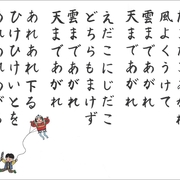 風よくうけて
雲まであがれ
天まであがれ
えだこにじだこ
どちらもまけず
雲まであがれ
天まであがれ
あれあれ下る
ひけひけいとを